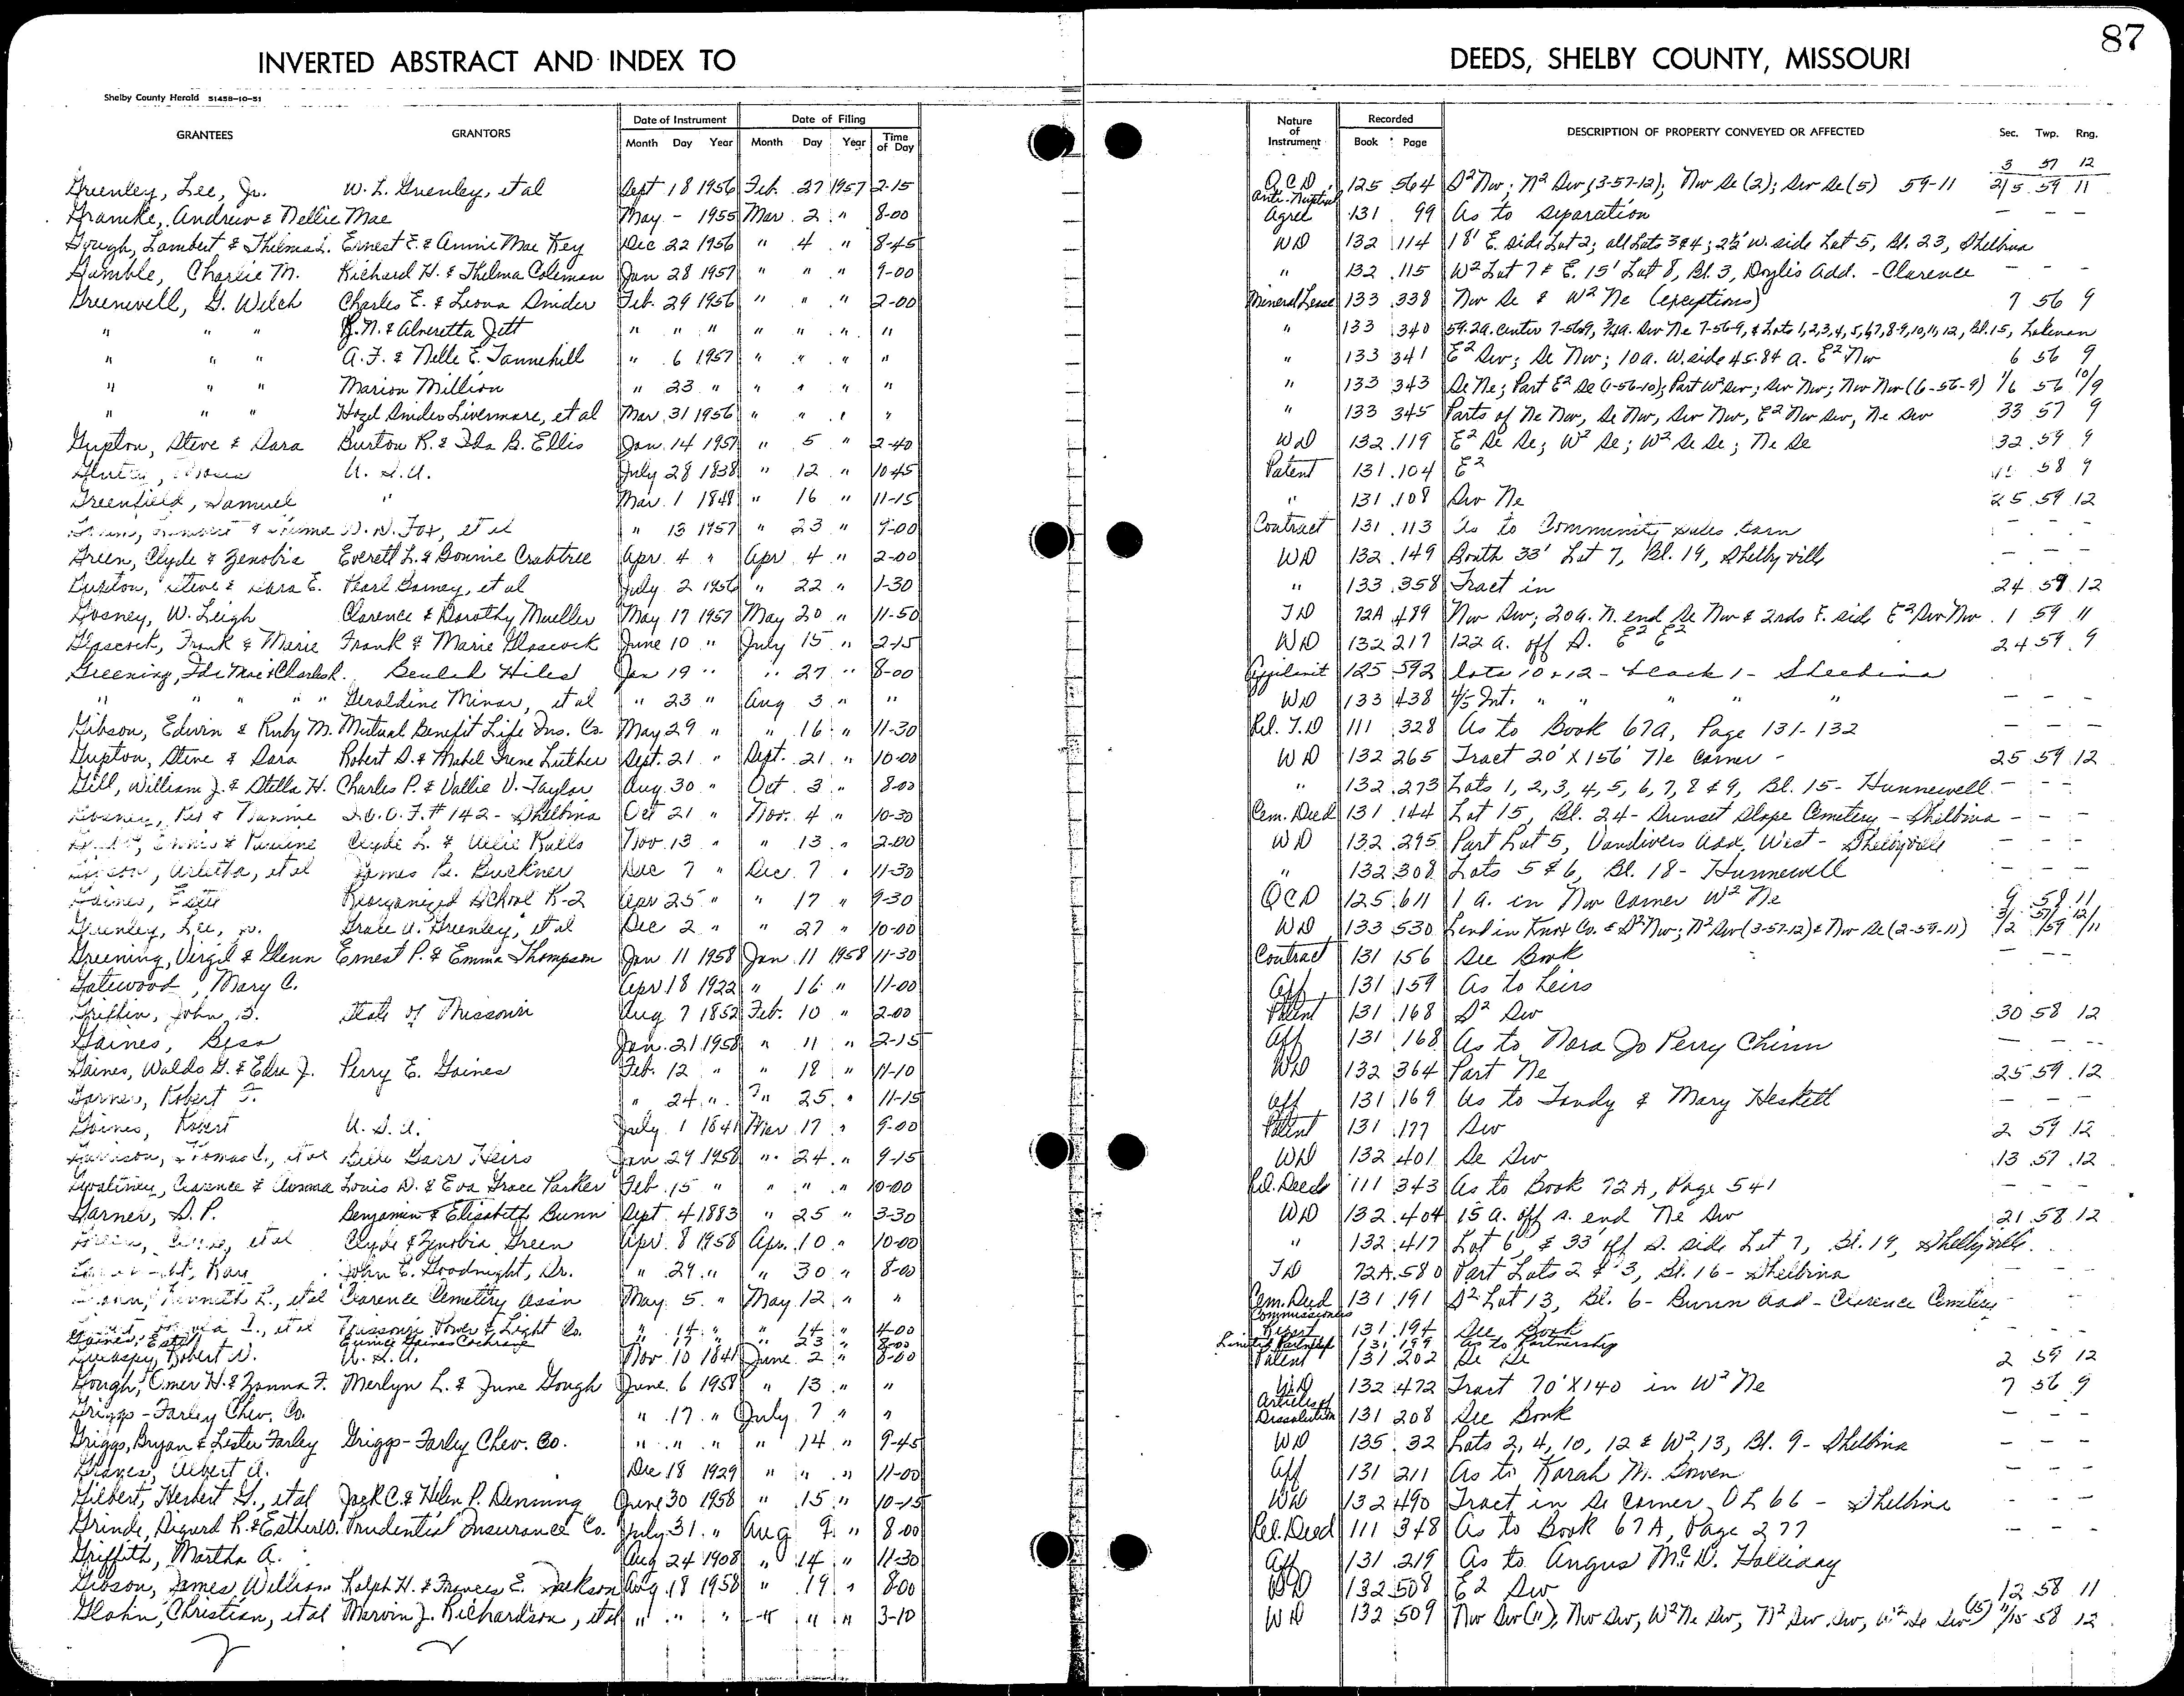 87
INVERTED ABSTRACT AND INDEX TO DEEDS, SHELBY COUNTY, MISSOURI
Shelby County Herald 51458-10-51
GRANTEES GRANTORS Date of Instrument Month Day Year Date of Filing Month Day Year Time of Day Nature of Instrument Recorded Book Page DESCRIPTION OF PROPERTY CONVEYED OR AFFECTED Sec. Twp. Rng.
3 57 12
Greenley, Lee, Jr. W. L. Greenley, et al Sept 18 1956 Feb. 27 1957 2-15 Q C D 125 564 S² Nw; N² Sw (3-57-12); Nw Se (2); Sw Se (5) 59-11 2/5 59 11
Gramke, Andrew & Nellie Mae May - 1955 Mar. 2 " 8-00 Anti-Nuptial Agree 131 99 As to separation — —
Gough, Lambert & Thelma L. Ernest E. & Annie Mae Key Dec 22 1956 " 4 " 8-45 WD 132 114 18' E. side Lot 2; all Lots 3 & 4; 2½' W. side Lot 5, Bl. 23, Shelbina
Gamble, Charlie M. Richard H. & Thelma Coleman Jan 28 1957 " " " 9-00 " 132 115 W² Lot 7 & E. 15' Lot 8, Bl. 3, Doyles Add. - Clarence - - -
Greenwell, G. Welch Charles E. & Leona Snider Feb. 29 1956 " " " 2-00 Mineral Lease 133 338 Nw Se & W² Ne (exceptions) 7 56 9
" " " R. N. & Alveretta Jett " " " " " " " " 133 340 59.29. center 7-56-9, 3/4a. Sw Ne 7-56-9, & Lots 1,2,3,4,5,6,7,8-9,10,11,12, Bl. 15, Lakenan
" " " A. F. & Nelle E. Tannehill " 6 1957 " " " " " 133 341 E² Sw; Se Nw; 10a. W. side 45.84 a. E² Nw 6 56 9
" " " Marion Million " 23 " " " " " " 133 343 Se Ne; Part E² Se (1-56-10); Part W² Sw; Sw Nw; Nw Nw (6-56-9) 1/6 56 10/9
" " " Hazel Snider Livermore, et al Mar. 31 1956 " " " " " 133 345 Parts of Ne Nw, Se Nw, Sw Nw, E² Nw Sw, Ne Sw 33 57 9
Gupton, Steve & Sara Burton R. & Ida B. Ellis Jan. 14 1957 " 5 " 2-40 WD 132 119 E² Se Se; W² Se; W² Se Se; Ne Se 32 59 9
U. S. A. July 28 1838 " 12 " 10-45 Patent 131 104 E² 58 9
Greenfield, Samuel " Mar. 1 1848 " 16 " 11-15 " 131 108 Sw Ne 25 59 12
D. N. Fox, et al " 13 1957 " 23 " 9-00 Contract 131 113 As to Community sales barn - - -
Green, Clyde & Zenobia Everett L. & Bonnie Crabtree Apr. 4 " Apr 4 " 2-00 WD 132 149 South 33' Lot 7, Bl. 19, Shelbyville - - -
Gupton, Steve & Sara E. Pearl Barney, et al July 2 1956 " 22 " 1-30 " 133 358 Tract in 24 59 12
Gosney, W. Leigh Clarence & Dorothy Mueller May 17 1957 May 20 " 11-50 T D 72A 489 Nw Sw; 20a. N. end Se Nw & 2 rds E. side E² Sw Nw 1 59 11
Glascock, Frank & Marie Frank & Marie Glascock June 10 " July 15 " 2-15 WD 132 217 122 a. off S. E² E² 24 59 9
Greening, Ida Mae & Charles R. Beulah Hiles Jan 19 " " 27 " 8-00 Affidavit 125 592 Lots 10 & 12 - block 1 - Shelbina
" " " " Geraldine Minor, et al " 23 " Aug 3 " " WD 133 438 4/5 Int. " " " " - - -
Gibson, Edwin & Ruby M. Mutual Benefit Life Ins. Co. May 29 " " 16 " 11-30 Rel. T.D 111 328 As to Book 67A, Page 131-132 - - -
Gupton, Steve & Sara Robert D. & Mabel Irene Luther Sept. 21 " Sept. 21 " 10-00 WD 132 265 Tract 20' X 156' Ne corner - 25 59 12
Gill, William J. & Stella H. Charles P. & Vallie V. Taylor Aug. 30 " Oct. 3 " 8-00 " 132 273 Lots 1, 2, 3, 4, 5, 6, 7, 8 & 9, Bl. 15 - Hunnewell - - -
I. O. O. F. # 142 - Shelbina Oct 21 " Nov. 4 " 10-30 Cem. Deed 131 144 Lot 15, Bl. 24 - Sunset Slope Cemetery - Shelbina - - -
& Pauline Clyde L. & Ralls Nov. 13 " " 13 " 2-00 WD 132 295 Part Lot 5, Vandivers Add. West - Shelbyville - - -
Arletha, et al James Buckner Dec 7 " Dec. 7 " 11-30 " 132 308 Lots 5 & 6, Bl. 18 - Hunnewell - - -
Gaines, Estil Reorganized School R-2 Apr 25 " " 17 " 9-30 QCD 125 611 1 a. in Nw Corner W² Ne 9 58 11
Greenley, Lee, Jr. Grace A. Greenley, et al Dec 2 " " 27 " 10-00 WD 133 530 Land in Knox Co. & S² Nw; N² Sw (3-57-12) & Nw Se (2-59-11) 3/2 57/59 12/11
Greening, Virgil & Glenn Ernest P. & Emma Thompson Jan 11 1958 Jan. 11 1958 11-30 Contract 131 156 See Book - -
Gatewood, Mary C. Apr 18 1922 " 16 " 11-00 Aff 131 159 As to heirs
Griffin, John B. State of Missouri Aug 7 1852 Feb. 10 " 2-00 Patent 131 168 S² Sw 30 58 12
Gaines, Bess Jan. 21 1958 " 11 " 2-15 Aff 131 168 As to Nora Jo Perry Chinn - - -
Gaines, Waldo G. & Edra J. Perry E. Gaines Feb. 12 " " 18 " 11-10 WD 132 364 Part Ne 25 59 12
Garner, Robert F. " 24 " " 25 " 11-15 Aff 131 169 As to Tandy & Mary Heskett - - -
Gaines, Robert U. S. A. July 1 1841 Mar. 17 " 9-00 Patent 131 177 Sw 2 59 12
Garrison, Thomas, et al Belle Garr Heirs Jan 29 1958 " 24 " 9-15 WD 132 401 Se Sw 13 57 12
Gwaltney, Clarence & Louis D. & Eva Grace Parker Feb 15 " " " " 10-00 Rel. Deed 111 343 As to Book 72A, Page 541 - - -
Garner, S. P. Benjamin & Elisabeth Bunn Sept. 4 1883 " 25 " 3-30 WD 132 404 15 a. off s. end Ne Sw 21 58 12
et al Clyde & Zenobia Green Apr. 8 1958 Apr. 10 " 10-00 " 132 417 Lot 6, & 33' off S. side Lot 7, Bl. 19, Shelbyville
John E. Goodnight, Sr. " 29 " " 30 " 8-00 T D 72A 580 Part Lots 2 & 3, Bl. 16 - Shelbina - - -
Kenneth L., et al Clarence Cemetery Assn May 5 " May 12 " " Cem. Deed 131 191 S² Lot 13, Bl. 6 - Bunn Add - Clarence Cemetery -
et al Missouri Power & Light Co. " 14 " " 14 " 4-00 Commissioners Report 131 194 See Book - - -
Gaines, Estil Eunice Gaines Cochrane " 17 " " 23 " 8-00 Limited Partnership 131 199 As to Partnership
Gillespy, Robert N. U. S. A. Nov. 10 1841 June 2 " 8-00 Patent 131 202 Se Se 2 59 12
Gough, Omer H. & Zonna F. Merlyn L. & June Gough June 6 1958 " 13 " " WD 132 472 Tract 70' X 140 in W² Ne 7 56 9
Griggs-Farley Chev. Co. " 17 " July 7 " " Articles of Dissolution 131 208 See Book - - -
Griggs, Bryan & Lester Farley Griggs-Farley Chev. Co. " " " " 14 " 9-45 WD 135 32 Lots 2, 4, 10, 12 & W² 13, Bl. 9 - Shelbina - - -
Graves, Albert A. Dec 18 1929 " " " 11-00 Aff 131 211 As to Karah M. Bowen - - -
Gilbert, Herbert G., et al Jack C. & Helen P. Denning June 30 1958 " 15 " 10-15 WD 132 490 Tract in Se Corner OL 66 - Shelbina - - -
Grinde, Sigurd R. & Esther O. Prudential Insurance Co. July 31 " Aug 9 " 8-00 Rel. Deed 111 348 As to Book 67A, Page 277 - - -
Griffith, Martha A. Aug 24 1908 " 14 " 11-30 Aff 131 219 As to Angus McD. Holliday
Gibson, James William Ralph H. & Frances E. Jackson Aug. 18 1958 " 19 " 8-00 WD 132 508 E2 Sw 12 58 11
Glahn, Christian, et al Marvin J. Richardson, et al " " " " " " 3-10 WD 132 509 Nw Sw (11), Nw Sw, W² Ne Sw, N² Sw Sw, W² Se Sw (15) 11/15 58 12